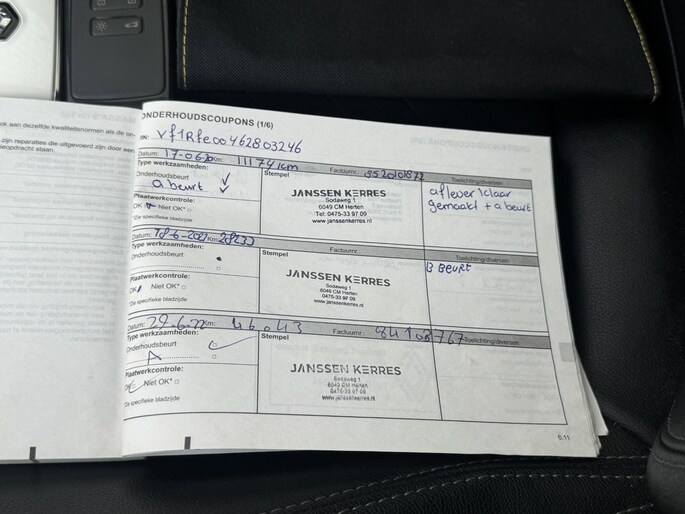 ONDERHOUDSCOUPONS (1/6)
Vf1Rfe00462803246
Datum: Km: 11174km Factuurnr.:
Type werkzaamheden: Stempel Toelichting/diversen
Onderhoudsbeurt
a beurt
Plaatwerkcontrole:
OK Niet OK*
*De specifieke bladzijde
JANSSEN KERRES
Sodaweg 1
6049 CM Herten
Tel: 0475-33 97 09
www.janssenkerres.nl
aflever klaar
gemaakt + a beurt
Datum: 18-6-2021 Km: Factuurnr.:
Type werkzaamheden: Stempel Toelichting/diversen
Onderhoudsbeurt
Plaatwerkcontrole:
Niet OK*
*De specifieke bladzijde
JANSSEN KERRES
Sodaweg 1
6049 CM Herten
0475-33 97 09
www.janssenkerres.nl
B Beurt
Datum: 29.6.22 Km: 46.043 Factuurnr.: 84108767 Toelichting/diversen
Type werkzaamheden: Stempel
Onderhoudsbeurt
A
Plaatwerkcontrole:
OK Niet OK*
*De specifieke bladzijde
JANSSEN KERRES
Sodaweg 1
6049 CM Herten
0475-33 97 09
www.janssenkerres.nl
6.11
ook aan dezelfde kwaliteitsnormen als de
zijn reparaties die uitgevoerd zijn door een